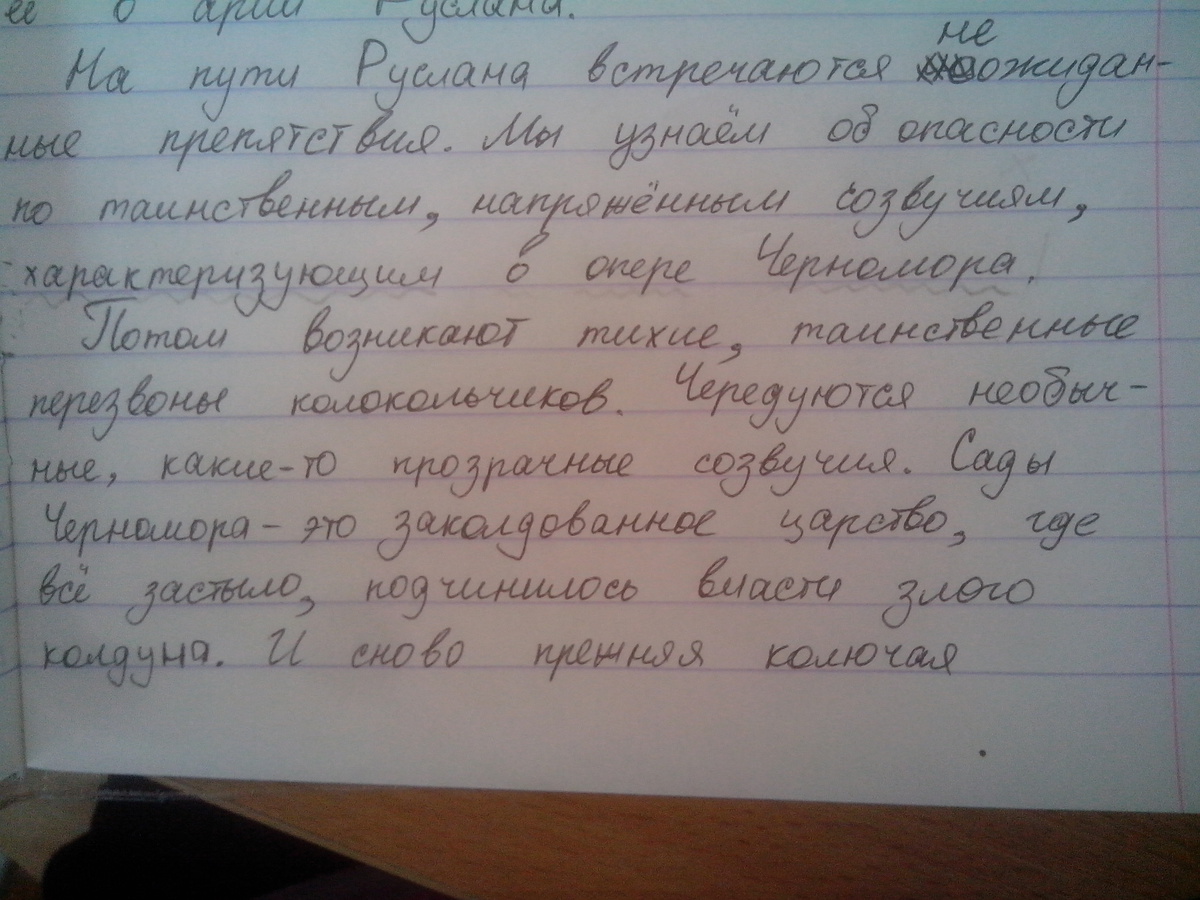 её в арии Руслана.
На пути Руслана встречаются неожидан-
ные препятствия. Мы узнаём об опасности
по таинственным, напряжённым созвучиям,
характеризующим в опере Черномора.
Потом возникают тихие, таинственные
перезвоны колокольчиков. Чередуются необыч-
ные, какие-то прозрачные созвучия. Сады
Черномора - это заколдованное царство, где
всё застыло, подчинилось власти злого
колдуна. И сново прежняя колючая